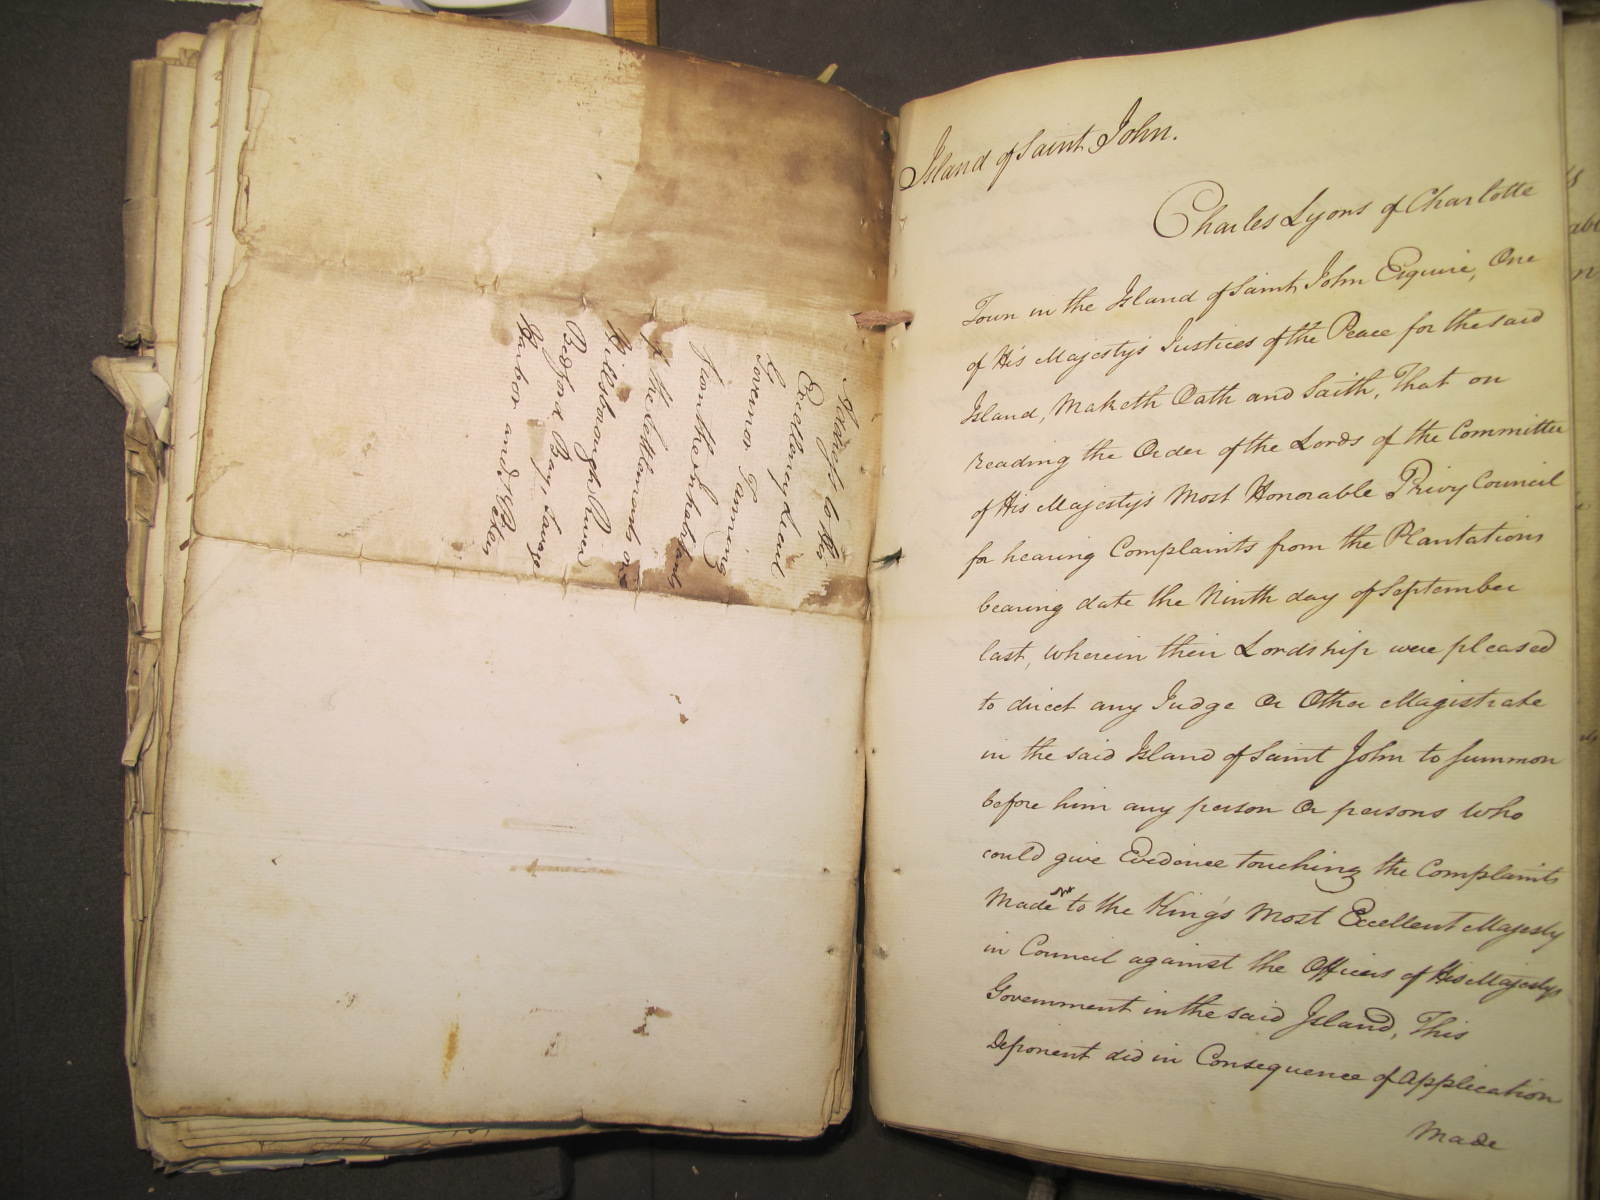 Address to His
Excellency Lieut
Governor Fanning
from the Inhabitants
of the Settlements on
Hillsborough River
Bedford Bay, Savage
Harbor and
Island of Saint John.
Charles Lyons of Charlotte
Town in the Island of Saint John Esquire, One
of His Majestys Justices of the Peace for the said
Island, Maketh Oath and Saith, That on
reading the Order of the Lords of the Committee
of His Majestys Most Honorable Privy Council
for hearing Complaints from the Plantations
bearing date the Ninth day of September
last, wherein their Lordship were pleased
to direct any Judge Or Other Magistrate
in the said Island of Saint John to summon
before him any person Or persons who
could give Evidence touching the Complaints
Made to the King's Most Excellent Majesty
in Council against the Officers of His Majestys
Government in the said Island, This
Deponent did in Consequence of Application
Made